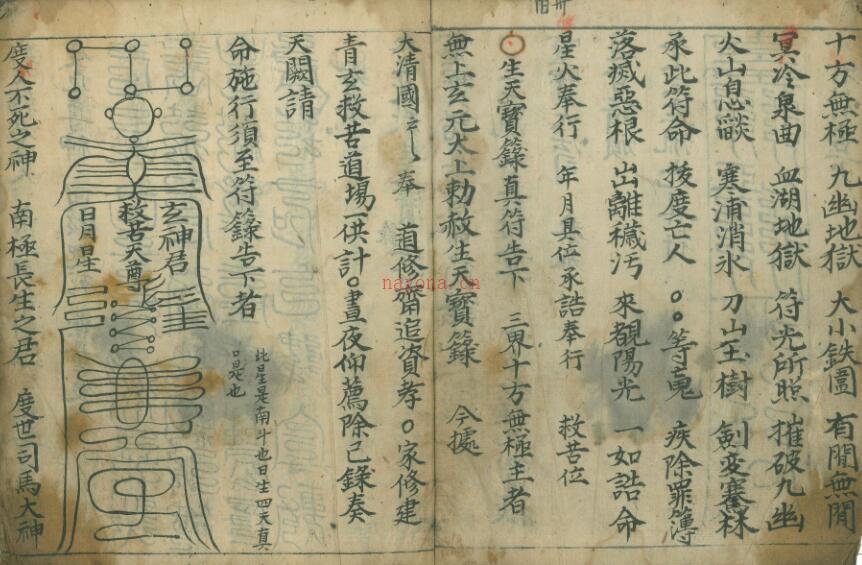 十方無極　九幽地獄　大小鉄圍　有閒無閒
冥冷泉曲　血湖地獄　符光所照　摧破九幽
火山息燄　寒浦消氷　刀山玉樹　劍変騫林
承此符命　㧞度亡人　○○等䰟　疾除罪簿
落滅惡根　出離穢污　來覩陽光　一如誥命
星火奉行　年月具位承誥奉行　救苦位
○生天寶籙真符告下　三界十方無極主者
無上玄元太上勅赦生天寶籙　今據
大清國　奉　道修齋追資孝○家修建
青玄救苦道場一供計○晝夜仰薦除已錄奏
天闕請
命施行須至符籙告下者
此星是南斗也日生四天真
口是也
玄神君
救苦天尊
日月星
度人不死之神　南極長生之君　度世司馬大神
nayona.cn